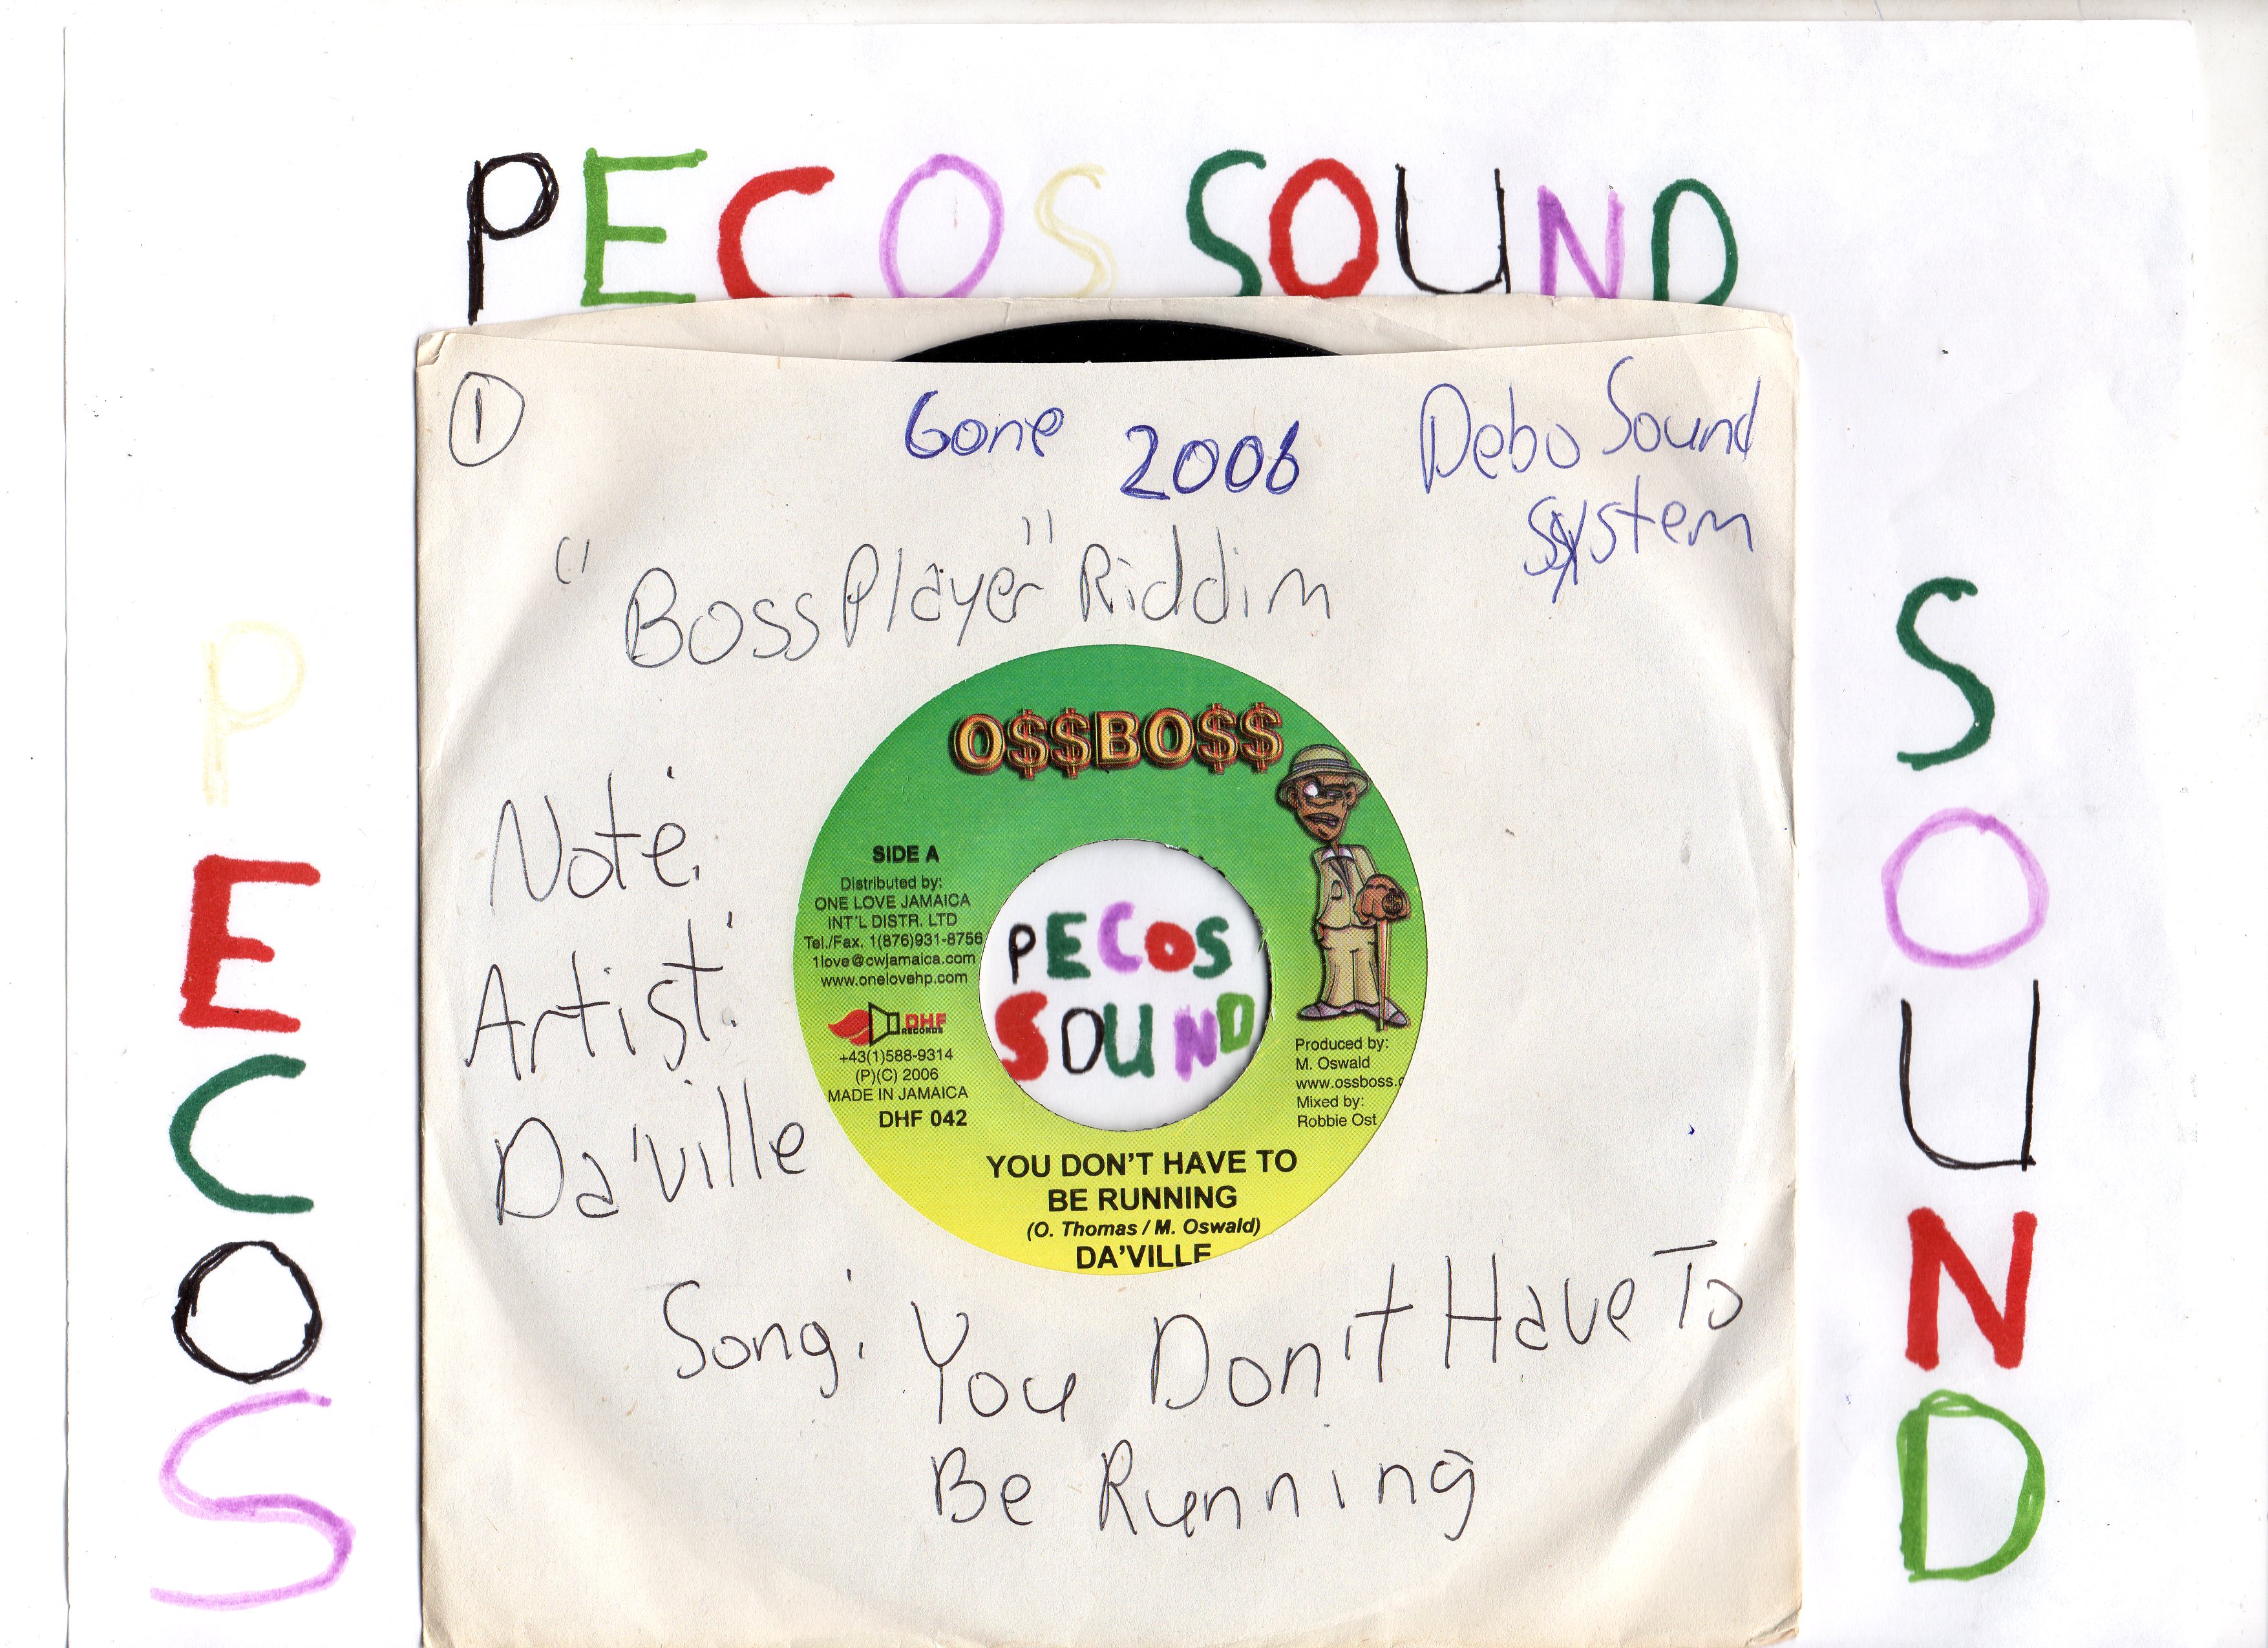 PECOS SOUND
1
Gone 2006
Debo Sound
System
"Boss Player" Riddim
O$$BO$$
Note:
Artist:
Da'ville
SIDE A
Distributed by:
ONE LOVE JAMAICA
INT'L DISTR. LTD
Tel./Fax. 1(876)931-8756
1love@cwjamaica.com
www.onelovehp.com
DHF
RECORDS
+43(1)588-9314
(P)(C) 2006
MADE IN JAMAICA
DHF 042
PECOS
SOUND
Produced by:
M. Oswald
www.ossboss.c
Mixed by:
Robbie Ost
YOU DON'T HAVE TO
BE RUNNING
(O. Thomas / M. Oswald)
DA'VILLE
Song: You Don't Have To
Be Running
PECOS
SOUND